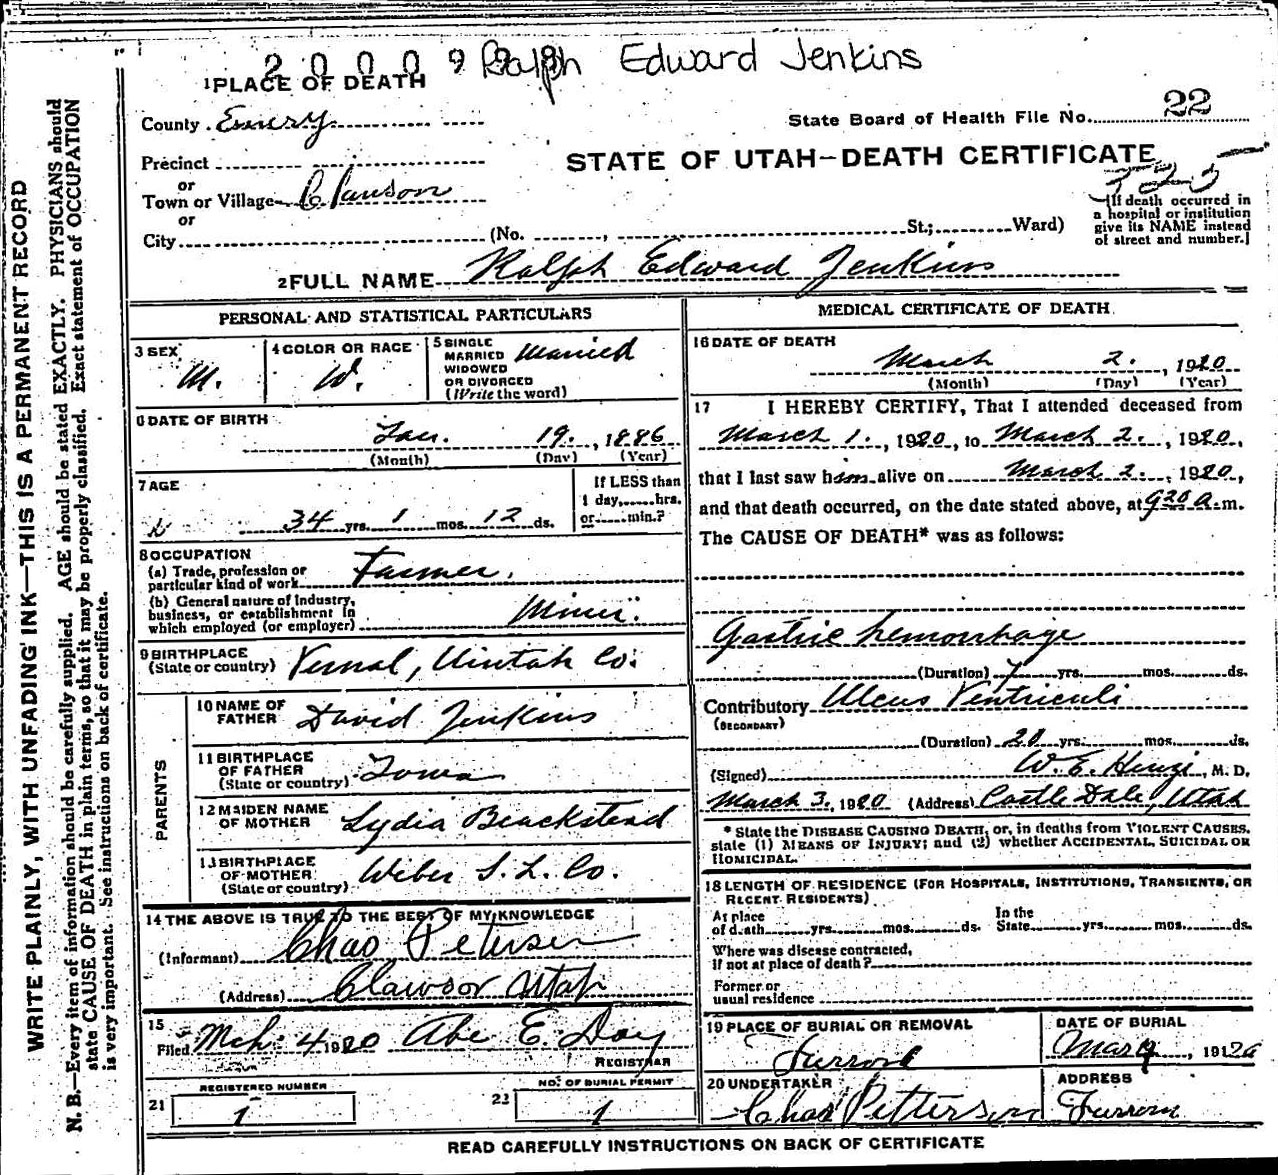 2 0 0 0 9 Ralph Edward Jenkins
1 PLACE OF DEATH
County Emery
State Board of Health File No. 22
Precinct
STATE OF UTAH—DEATH CERTIFICATE
or
Town or Village Clawson
325
or
City (No. , St.; Ward)
[If death occurred in
a hospital or institution
give its NAME instead
of street and number.]
2 FULL NAME Ralph Edward Jenkins
PERSONAL AND STATISTICAL PARTICULARS
3 SEX M.
4 COLOR OR RACE W.
5 SINGLE
MARRIED
WIDOWED
OR DIVORCED
(Write the word) Married
6 DATE OF BIRTH
Jan. 19. , 1886
(Month) (Day) (Year)
7 AGE
34 yrs. 1 mos. 12 ds.
If LESS than
1 day,......hrs.
or......min.?
8 OCCUPATION
(a) Trade, profession or
particular kind of work Farmer.
(b) General nature of industry,
business, or establishment in
which employed (or employer) Miner.
9 BIRTHPLACE
(State or country) Vernal, Uintah Co.
PARENTS
10 NAME OF
FATHER David Jenkins
11 BIRTHPLACE
OF FATHER
(State or country) Iowa
12 MAIDEN NAME
OF MOTHER Lydia Beackstead
13 BIRTHPLACE
OF MOTHER
(State or country) Weber S. L. Co.
14 THE ABOVE IS TRUE TO THE BEST OF MY KNOWLEDGE
(Informant) Chas Petersen
(Address) Clawson Utah
15
Filed Mch. 4 1920 Abe E. Day
REGISTRAR
21 REGISTERED NUMBER
1
22 NO. OF BURIAL PERMIT
1
MEDICAL CERTIFICATE OF DEATH
16 DATE OF DEATH
March 2. , 1920
(Month) (Day) (Year)
17 I HEREBY CERTIFY, That I attended deceased from
March 1. , 1920, to March 2. , 1920,
that I last saw him alive on March 2. , 1920,
and that death occurred, on the date stated above, at 9 20 a. m.
The CAUSE OF DEATH* was as follows:
Gastric hemorrhage
(Duration) 7 yrs. mos. ds.
Contributory Ulcus Ventriculi
(SECONDARY)
(Duration) 20 yrs. mos. ds.
(Signed) W. E. , M. D.
March 3. 1920 (Address) Castle Dale, Utah
* State the DISEASE CAUSING DEATH, or, in deaths from VIOLENT CAUSES,
state (1) MEANS OF INJURY; and (2) whether ACCIDENTAL, SUICIDAL OR
HOMICIDAL.
18 LENGTH OF RESIDENCE (FOR HOSPITALS, INSTITUTIONS, TRANSIENTS, OR
RECENT RESIDENTS)
At place
of death yrs. mos. ds.
In the
State yrs. mos. ds.
Where was disease contracted,
If not at place of death?
Former or
usual residence
19 PLACE OF BURIAL OR REMOVAL
Ferron
DATE OF BURIAL
Mar 4 , 1920
20 UNDERTAKER
Chas Petterson
ADDRESS
Ferron
READ CAREFULLY INSTRUCTIONS ON BACK OF CERTIFICATE
WRITE PLAINLY, WITH UNFADING INK—THIS IS A PERMANENT RECORD
N. B.—Every item of information should be carefully supplied. AGE should be stated EXACTLY. PHYSICIANS should
state CAUSE OF DEATH in plain terms, so that it may be properly classified. Exact statement of OCCUPATION
is very important. See instructions on back of certificate.